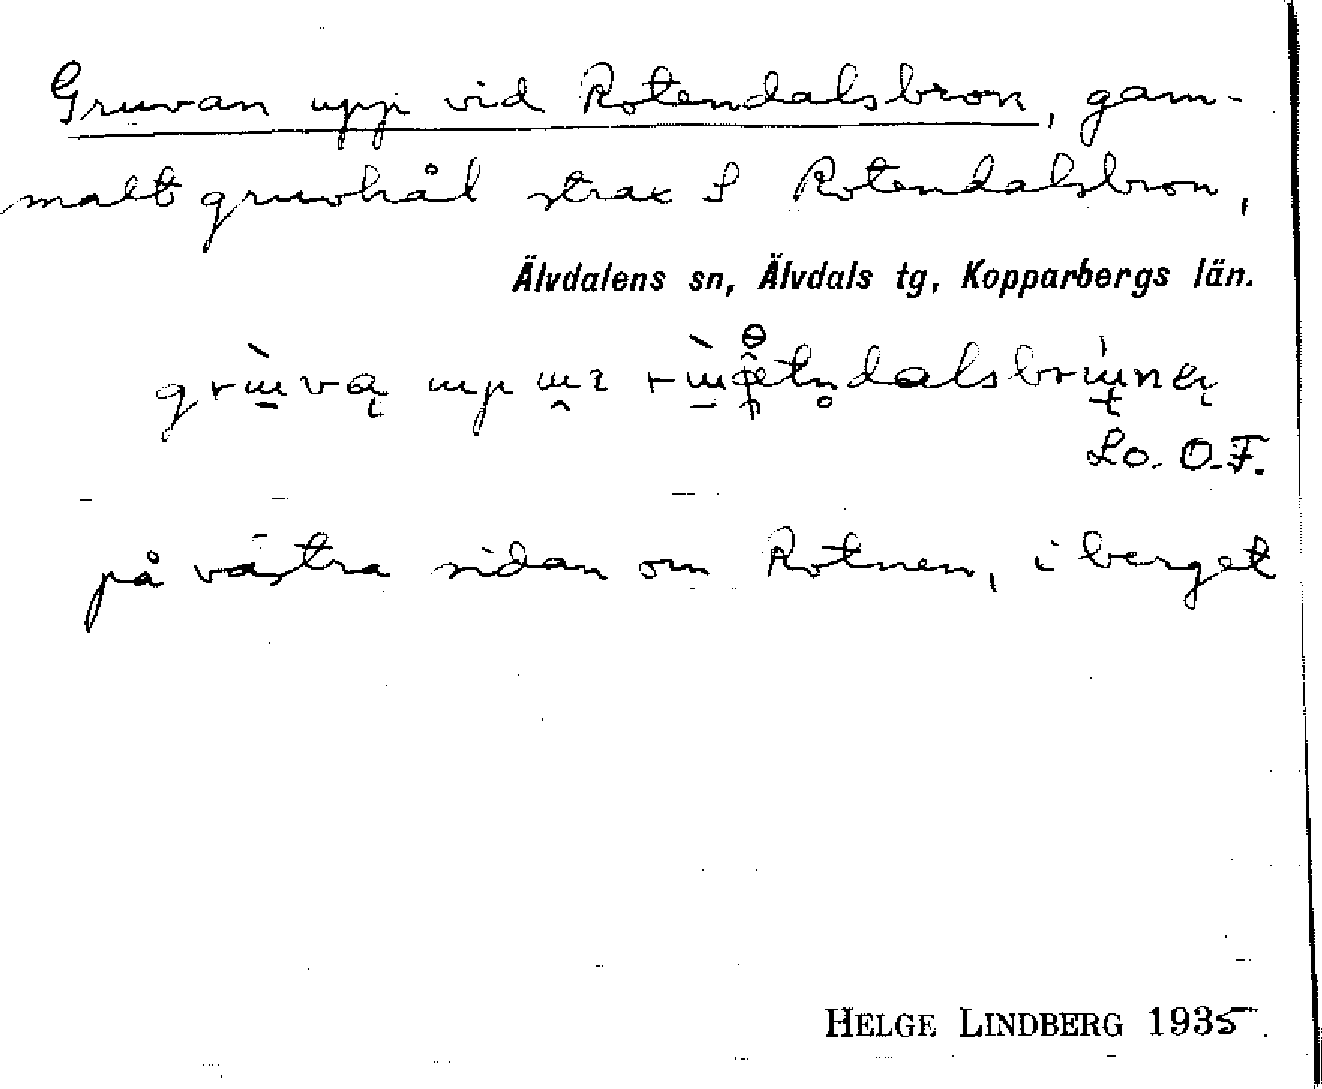 Gruvan upp vid Rotendalsbron, gam-
malt gruvhål strax S Rotendalsbron,
Älvdalens sn, Älvdals tg, Kopparbergs län.
Lo. O.F.
på västra sidan om Rotnen, i berget
HELGE LINDBERG 1935.